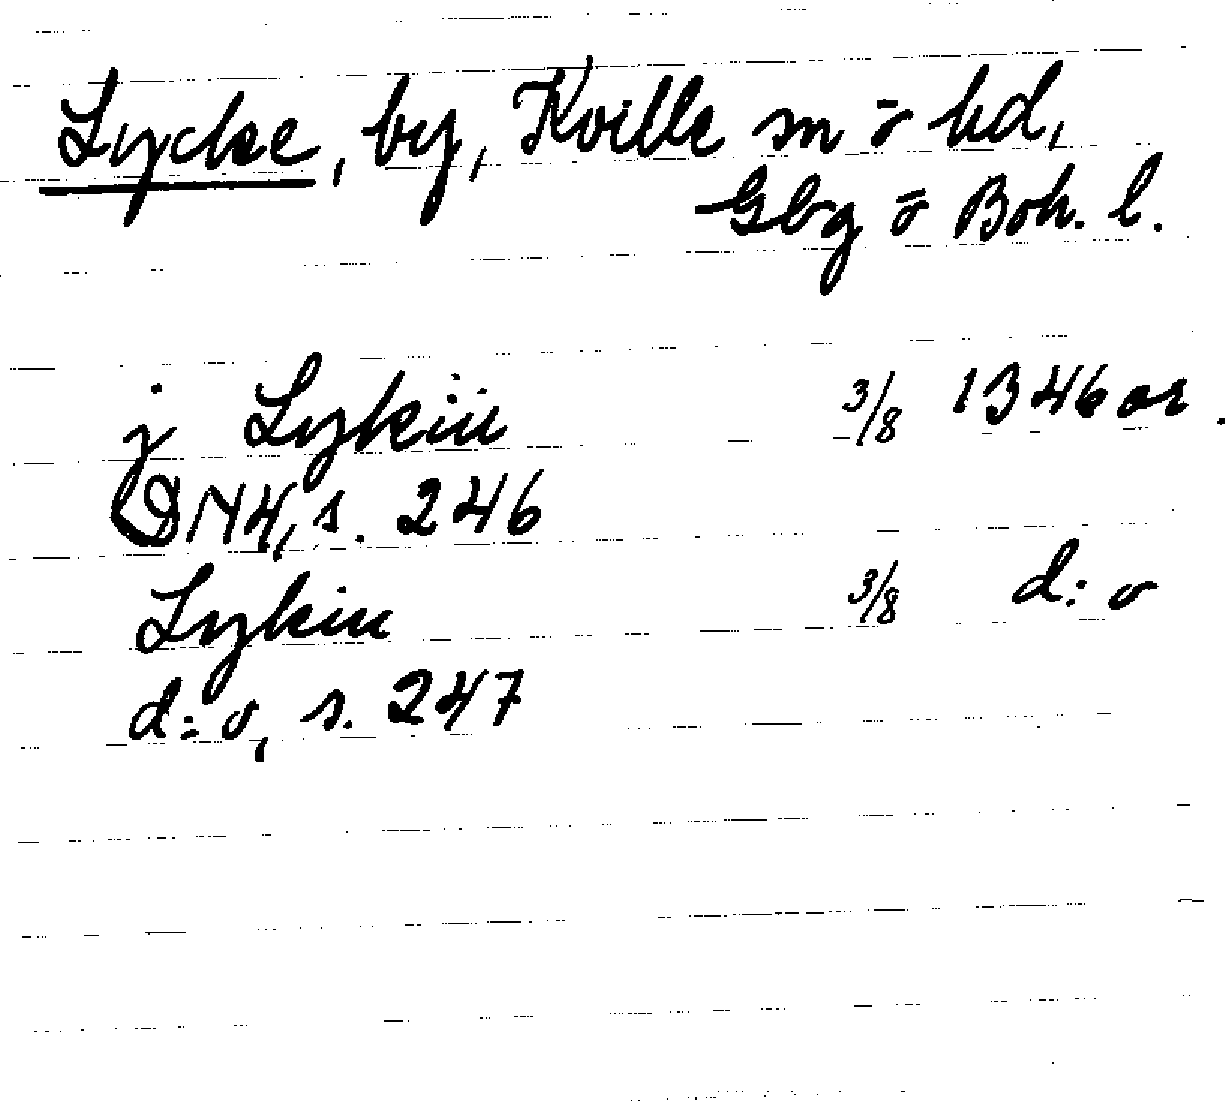 Lycke, by, Kville sn o hd,
Gbg o Boh. l.
j Lykiu 3/8 1346 or.
DN4, s. 246
Lykiu 3/8 d:o
d:o, s. 247